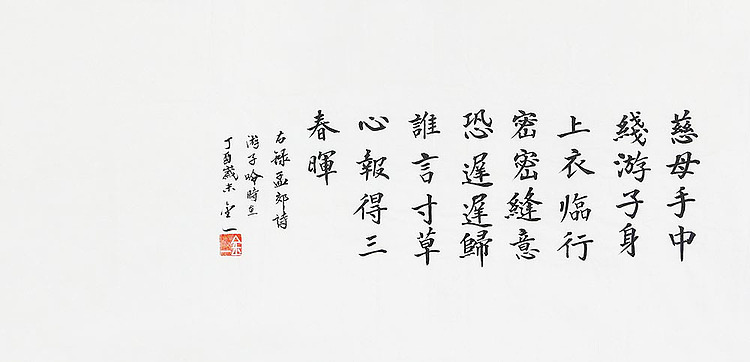 慈母手中
綫游子身
上衣臨行
密密縫意
恐遲遲歸
誰言寸草
心報得三
春暉
右録孟郊詩
游子吟時在
丁酉歲末金一